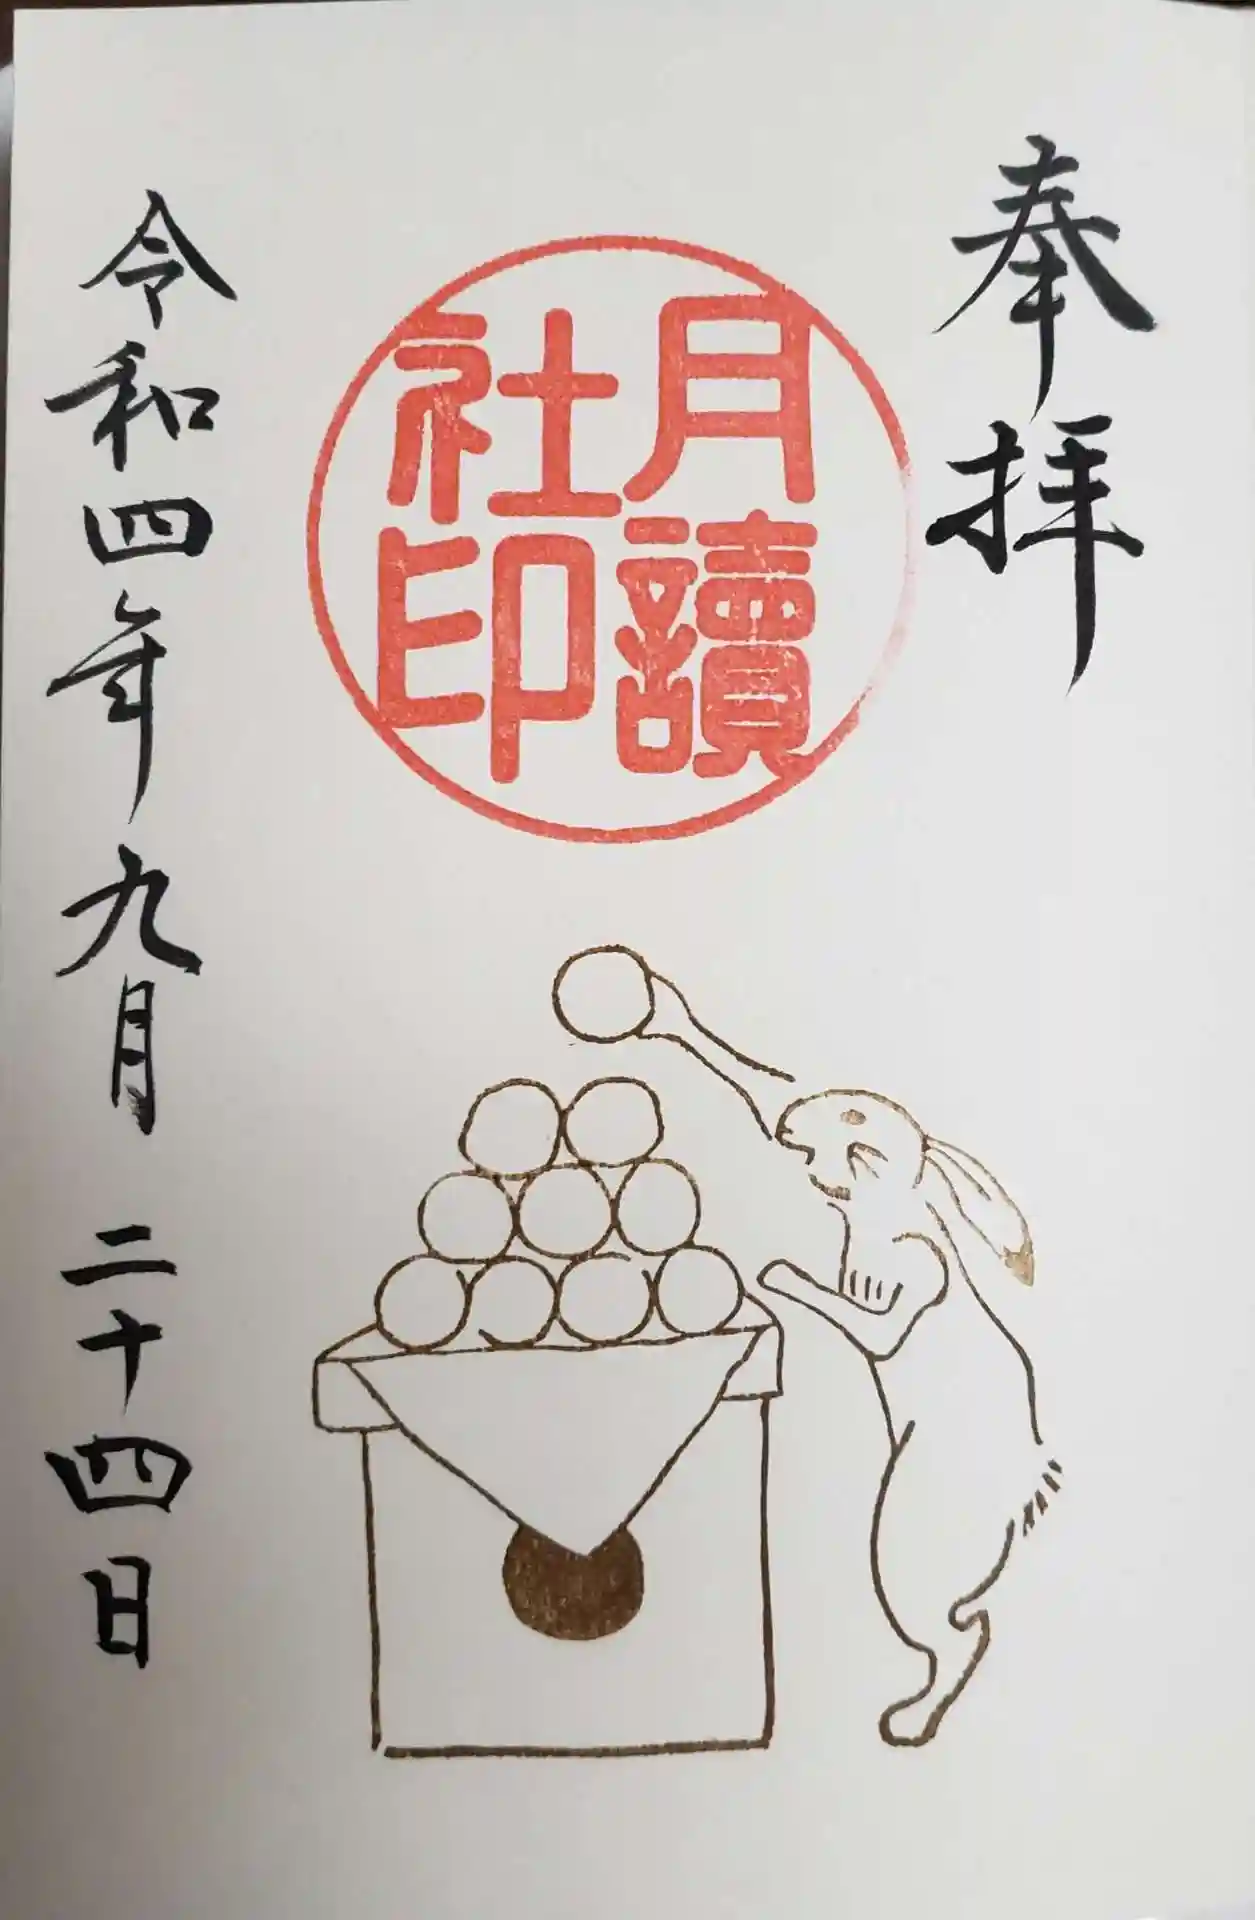 奉拝
月讀
社印
令和四年九月二十四日